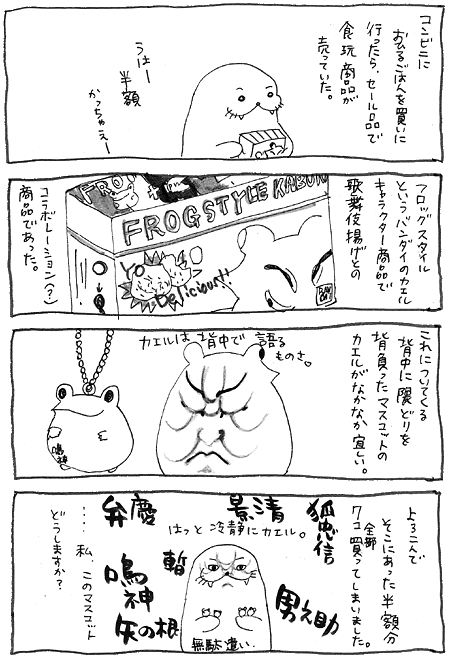 コンビニに
おひるごはんを買いに
行ったら、セール品で
食玩商品が
売っていた。
うはー
半額
かっちゃえー
フロッグスタイル
というバンダイのカエル
キャラクター商品で
歌舞伎揚げとの
コラボレーション(?)
商品であった。
FROG STYLE KABUKI
Yo
Delicious!!
これについてくる
背中に隈どりを
背負ったマスコットの
カエルがなかなか宜しい。
カエルは背中で語る
ものさ。
鳴神
よろこんで
そこにあった半額分
全部
7コ買ってしまいました。
狐忠信
景清
弁慶
はっと冷静にカエル。
暫
鳴神
男之助
矢の根
無駄遣い.
....私、このマスコット
どうしますか?